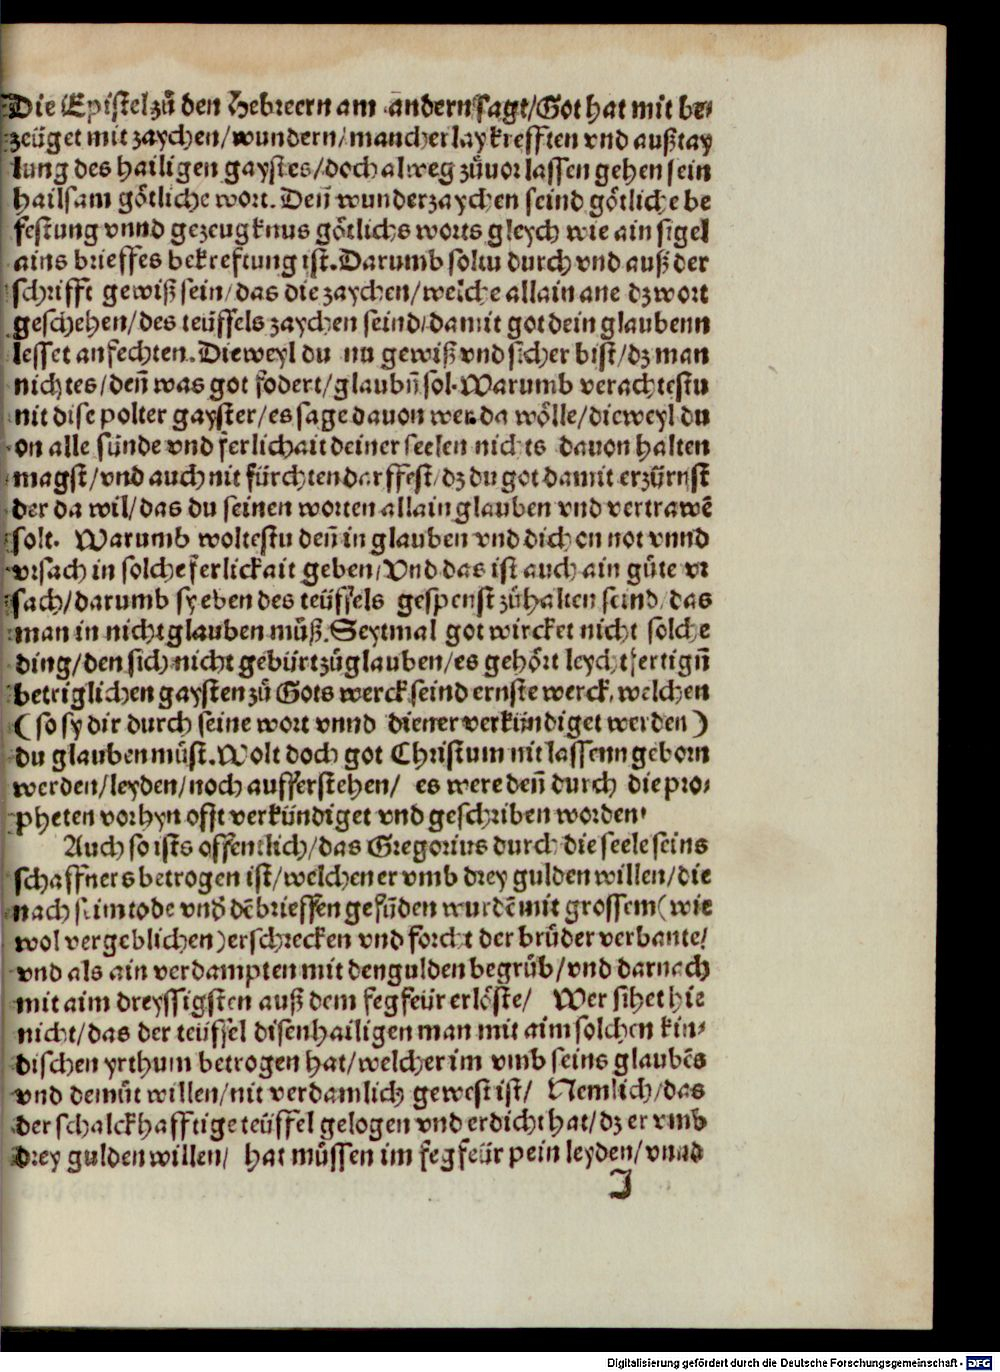 Die Epistel zů den Hebreern am andern sagt/Got hat mit be⸗
zeüget mit zaychen/wundern/mancherlay krefften vnd außtay
lung des hailigen gaystes/doch alweg zůuor lassen gehen sein
hailsam götliche wort. Deñ wunderzaychen seind götliche be
festung vnnd gezeugknus götlichs worts gleych wie ain sigel
ains brieffes bekreftung ist. Darumb soltu durch vnd auß der
schrifft gewiß sein/das die zaychen/welche allain ane dz wort
geschehen/des teüffels zaychen seind/damit got dein glaubenn
lesset anfechten. Dieweyl du nu gewiß vnd sicher bist/dz man
nichtes/deñ was got fodert/glaubñ sol. Warumb verachtestu
nit dise polter gayster/es sage dauon wer da wölle/dieweyl du
on alle sünde vnd ferlichait deiner seelen nichts dauon halten
magst/vnd auch nit fürchten darffest/dz du got damit erzürnst
der da wil/das du seinen worten allain glauben vnd vertrawẽ
solt. Warumb woltestu deñ in glauben vnd dich on not vnnd
vrsach in solche ferlickait geben/Vnd das ist auch ain gůte vr
sach/darumb sy eben des teüffels gespenst zůhalten seind/das
man in nicht glauben můß. Seytmal got wircket nicht solche
ding/den sich nicht gebürt zůglauben/es gehört leychtfertigñ
betriglichen gaysten zů Gots werck seind ernste werck, welchen
(so sy dir durch seine wort vnnd diener verkündiget werden)
du glauben můst. Wolt doch got Christum nit lassenn geborn
werden/leyden/noch aufferstehen/ es were deñ durch die pro⸗
pheten vorhyn offt verkündiget vnd geschriben worden.
Auch so ists offentlich/das Gregorius durch die seele seins
schaffners betrogen ist/welchen er vmb drey gulden willen/die
nach seim tode vnd dẽ brieffen gefũden wurdẽ mit grossem(wie
wol vergeblichen)erschrecken vnd forcht der brůder verbante/
vnd als ain verdampten mit den gulden begrůb/vnd darnach
mit aim dreyssigsten auß dem fegfeür erlöste/ Wer sihet hie
nicht/das der teüffel disen hailigen man mit aim solchen kin⸗
dischen yrthum betrogen hat/welcher im vmb seins glaubẽs
vnd demůt willen/nit verdamlich gewest ist/ Nemlich/das
der schalckhafftige teüffel gelogen vnd erdicht hat/dz er vmb
drey gulden willen/ hat müssen im fegfeür pein leyden/vnnd
J
Digitalisierung gefördert durch die Deutsche Forschungsgemeinschaft - DFG